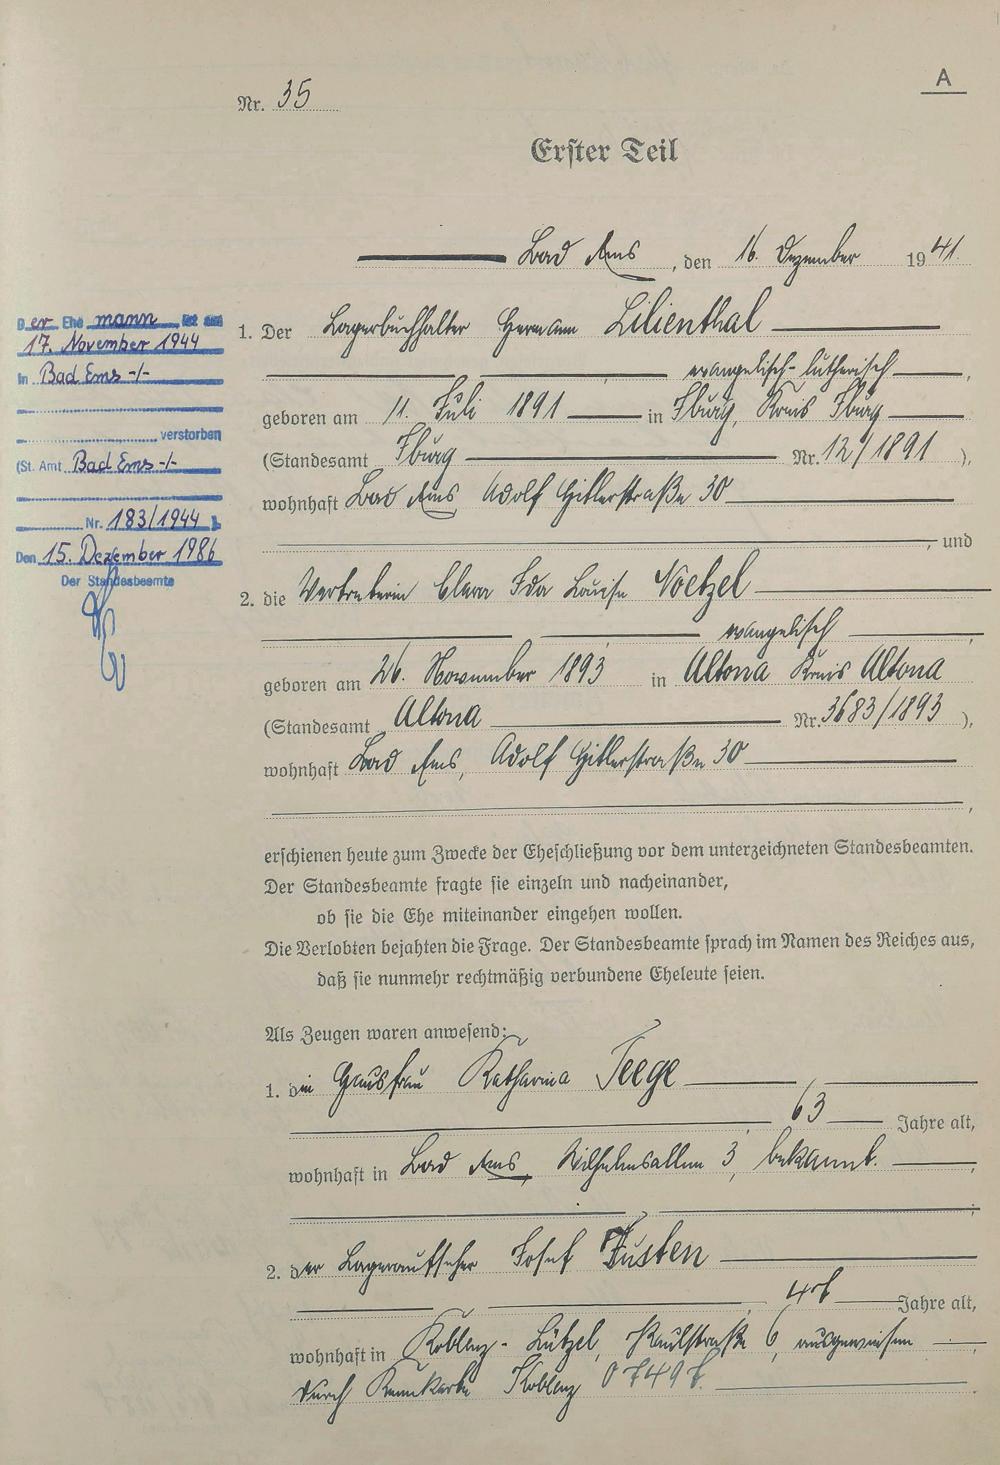 A
Nr. 35
Erster Teil
Bad Ems, den 16. Dezember 1941.
Der Ehemann ist am
17. November 1944
in Bad Ems -/-
verstorben
(St. Amt Bad Ems -/-
Nr. 183/1944 ).
Den 15. Dezember 1986
Der Standesbeamte
1. Der Lagerbuchhalter Hermann Lilienthal
evangelisch-lutherisch,
geboren am 11. Juli 1891 in Iburg, Kreis Iburg
(Standesamt Iburg Nr. 12/1891 ),
wohnhaft Bad Ems Adolf Hitlerstraße 30
, und
2. die Vertreterin Clara Ida Louise Noetzel
evangelisch,
geboren am 26. November 1893 in Altona Kreis Altona
(Standesamt Altona Nr. 3683/1893 ),
wohnhaft Bad Ems, Adolf Hitlerstraße 30
,
erschienen heute zum Zwecke der Eheschließung vor dem unterzeichneten Standesbeamten.
Der Standesbeamte fragte sie einzeln und nacheinander,
ob sie die Ehe miteinander eingehen wollen.
Die Verlobten bejahten die Frage. Der Standesbeamte sprach im Namen des Reiches aus,
daß sie nunmehr rechtmäßig verbundene Eheleute seien.
Als Zeugen waren anwesend:
1. die Hausfrau Katharina Teege
63 Jahre alt,
wohnhaft in Bad Ems, Wilhelmsallee 3, bekannt.
2. der Lageraufseher Josef
Jahre alt,
wohnhaft in Koblenz-Lützel, 6, ausgewiesen
durch Kennkarte Koblenz